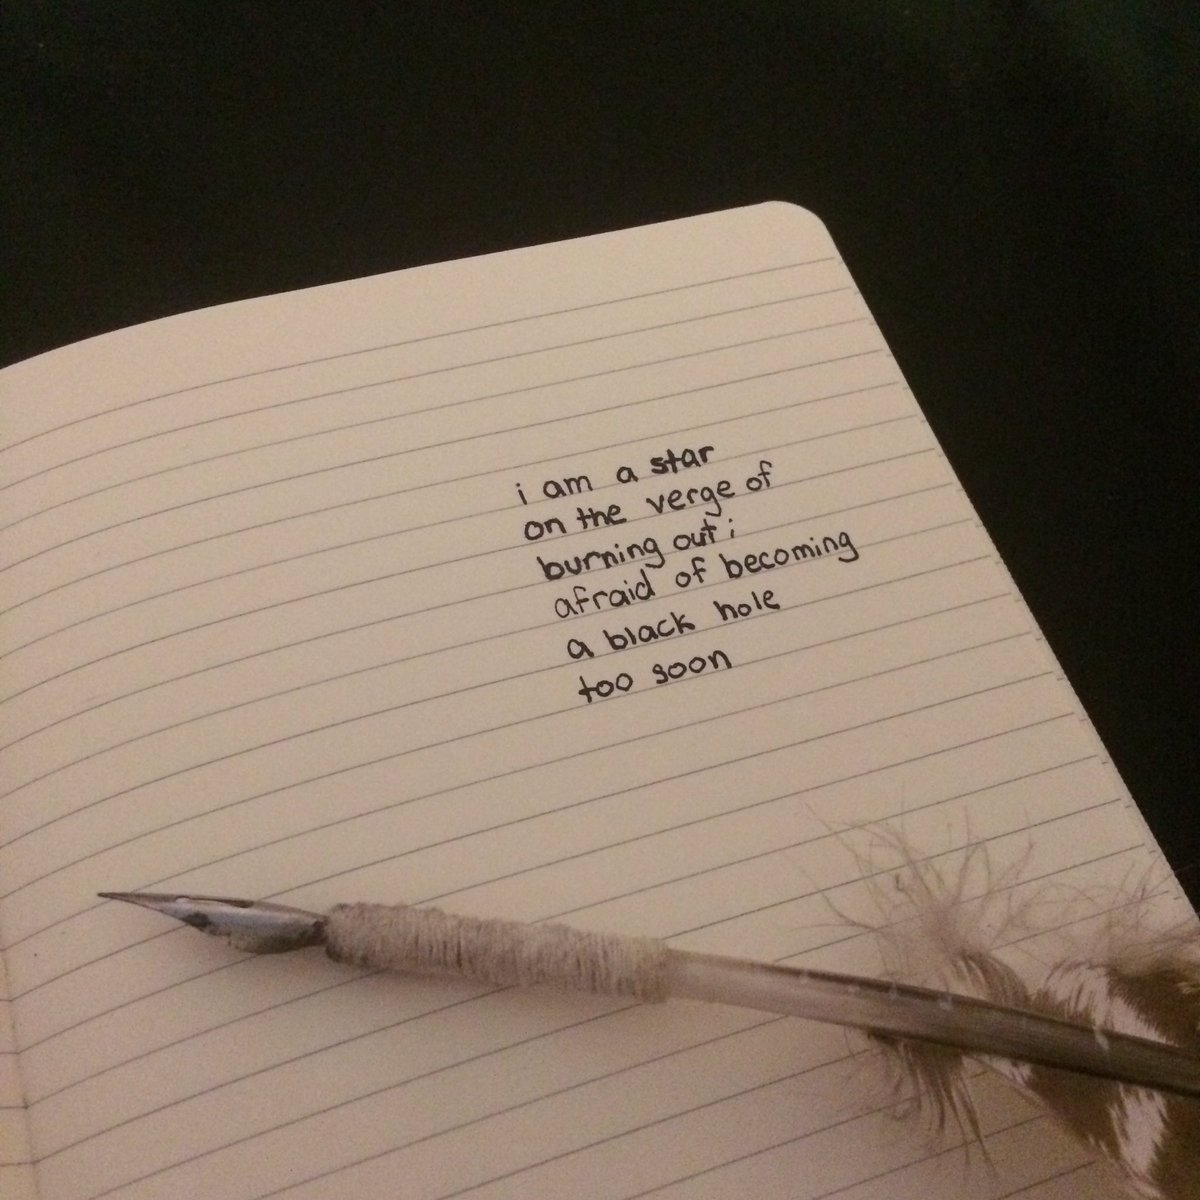 i am a star
on the verge of
burning out;
afraid of becoming
a black hole
too soon